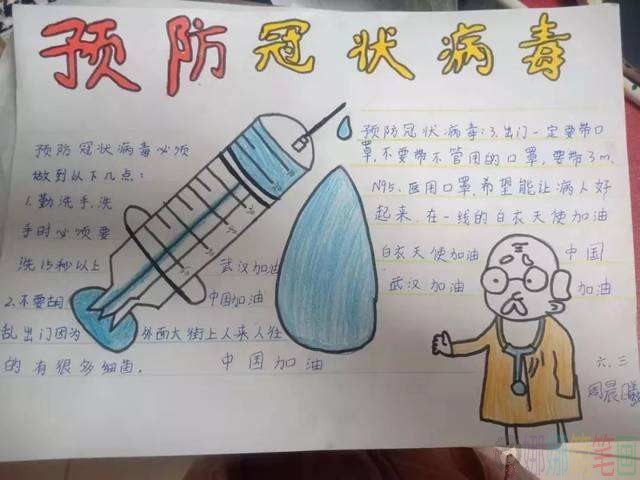 预防冠状病毒
预防冠状病毒必须
做到以下几点:
1.勤洗手,洗
手时必须要
洗15秒以上
2.不要胡
乱出门因为
外面大街上人来人往
的有很多细菌。
武汉加油
中国加油
中国加油
预防冠状病毒:3.出门一定要带口
罩,不要带不管用的口罩,要带3m、
N95、医用口罩,希望能让病人好
起来,在一线的白衣天使加油
白衣天使加油 中国
武汉加油 加油
六.三
周晨